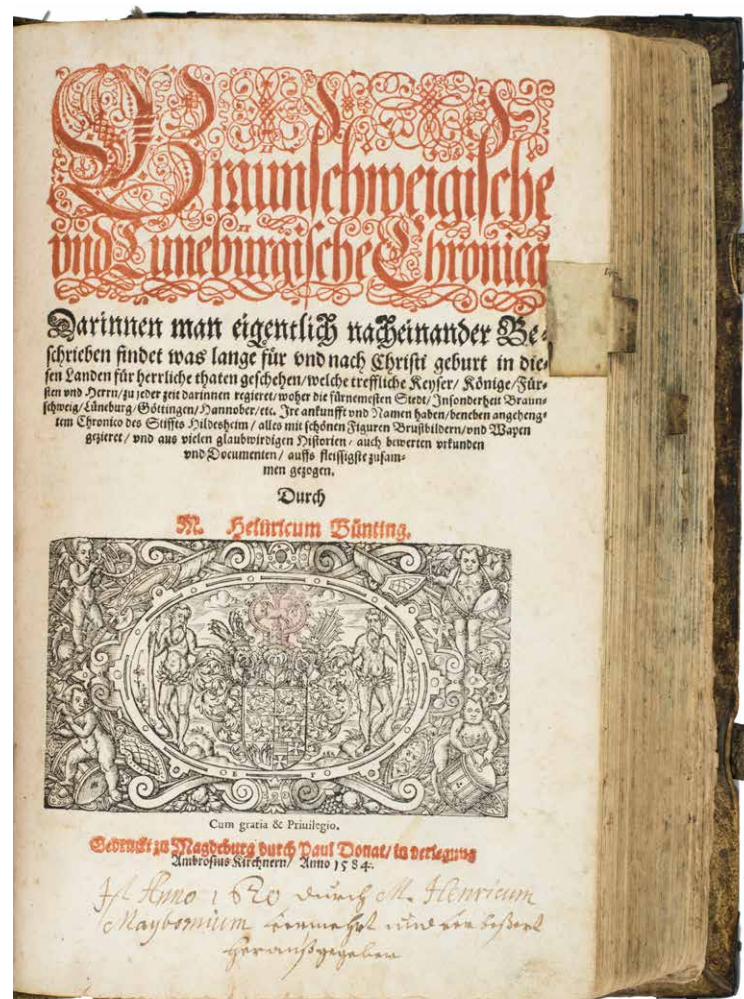 Braunschweigische
vnd Lüneburgische Chronica
Darinnen man eigentlich nacheinander Be⸗
schrieben findet was lange für vnd nach Christi geburt in die⸗
sen Landen für herrliche thaten geschehen/welche treffliche Keyser/ Könige/Für⸗
sten vnd Herrn/zu jeder zeit darinnen regieret/woher die fürnemesten Stedt/ Insonderheit Braun⸗
schweig/Lüneburg/Göttingen/Hannober/etc. Ire ankunfft vnd Namen haben/beneben angeheng⸗
tem Chronico des Stiffts Hildesheim/ alles mit schönen Figuren Brustbildern/vnd Wapen
gezieret/ vnd aus vielen glaubwirdigen Historien/ auch bewerten vrkunden
vnd Documenten/ auffs fleissigste zusam⸗
men gezogen.
Durch
M. Heinricum Bünting.
Cum gratia & Priuilegio.
Gedruckt zu Magdeburg durch Paul Donat/ in verlegung
Ambrosius Kirchnern/ Anno 1584.
Ist Anno 1620 durch M. Henricum
Maybomium vermehrt und verbeßert
heraußgegeben